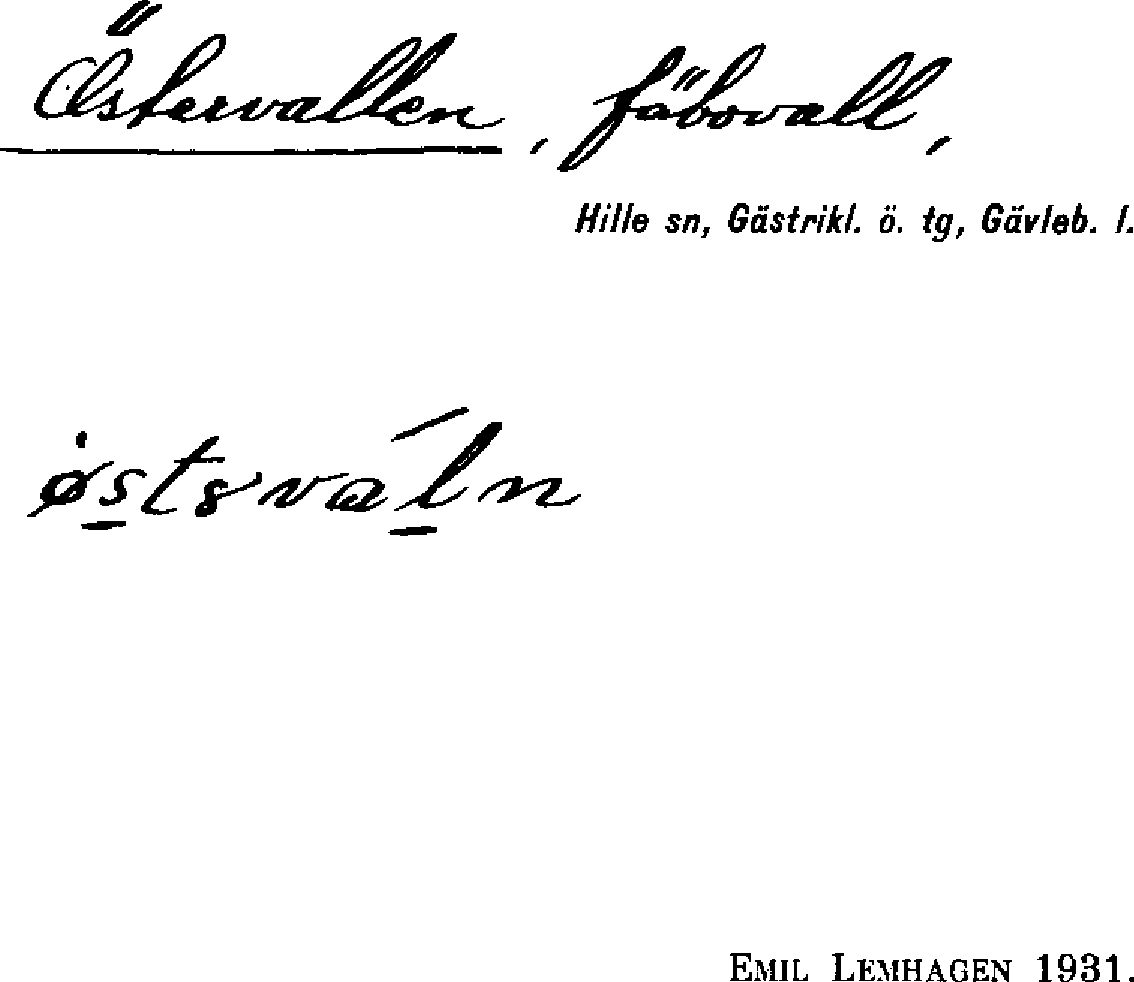 Östervallen, fäbovall,
Hille sn, Gästrikl. ö. tg, Gävleb. l.
EMIL LEMHAGEN 1931.